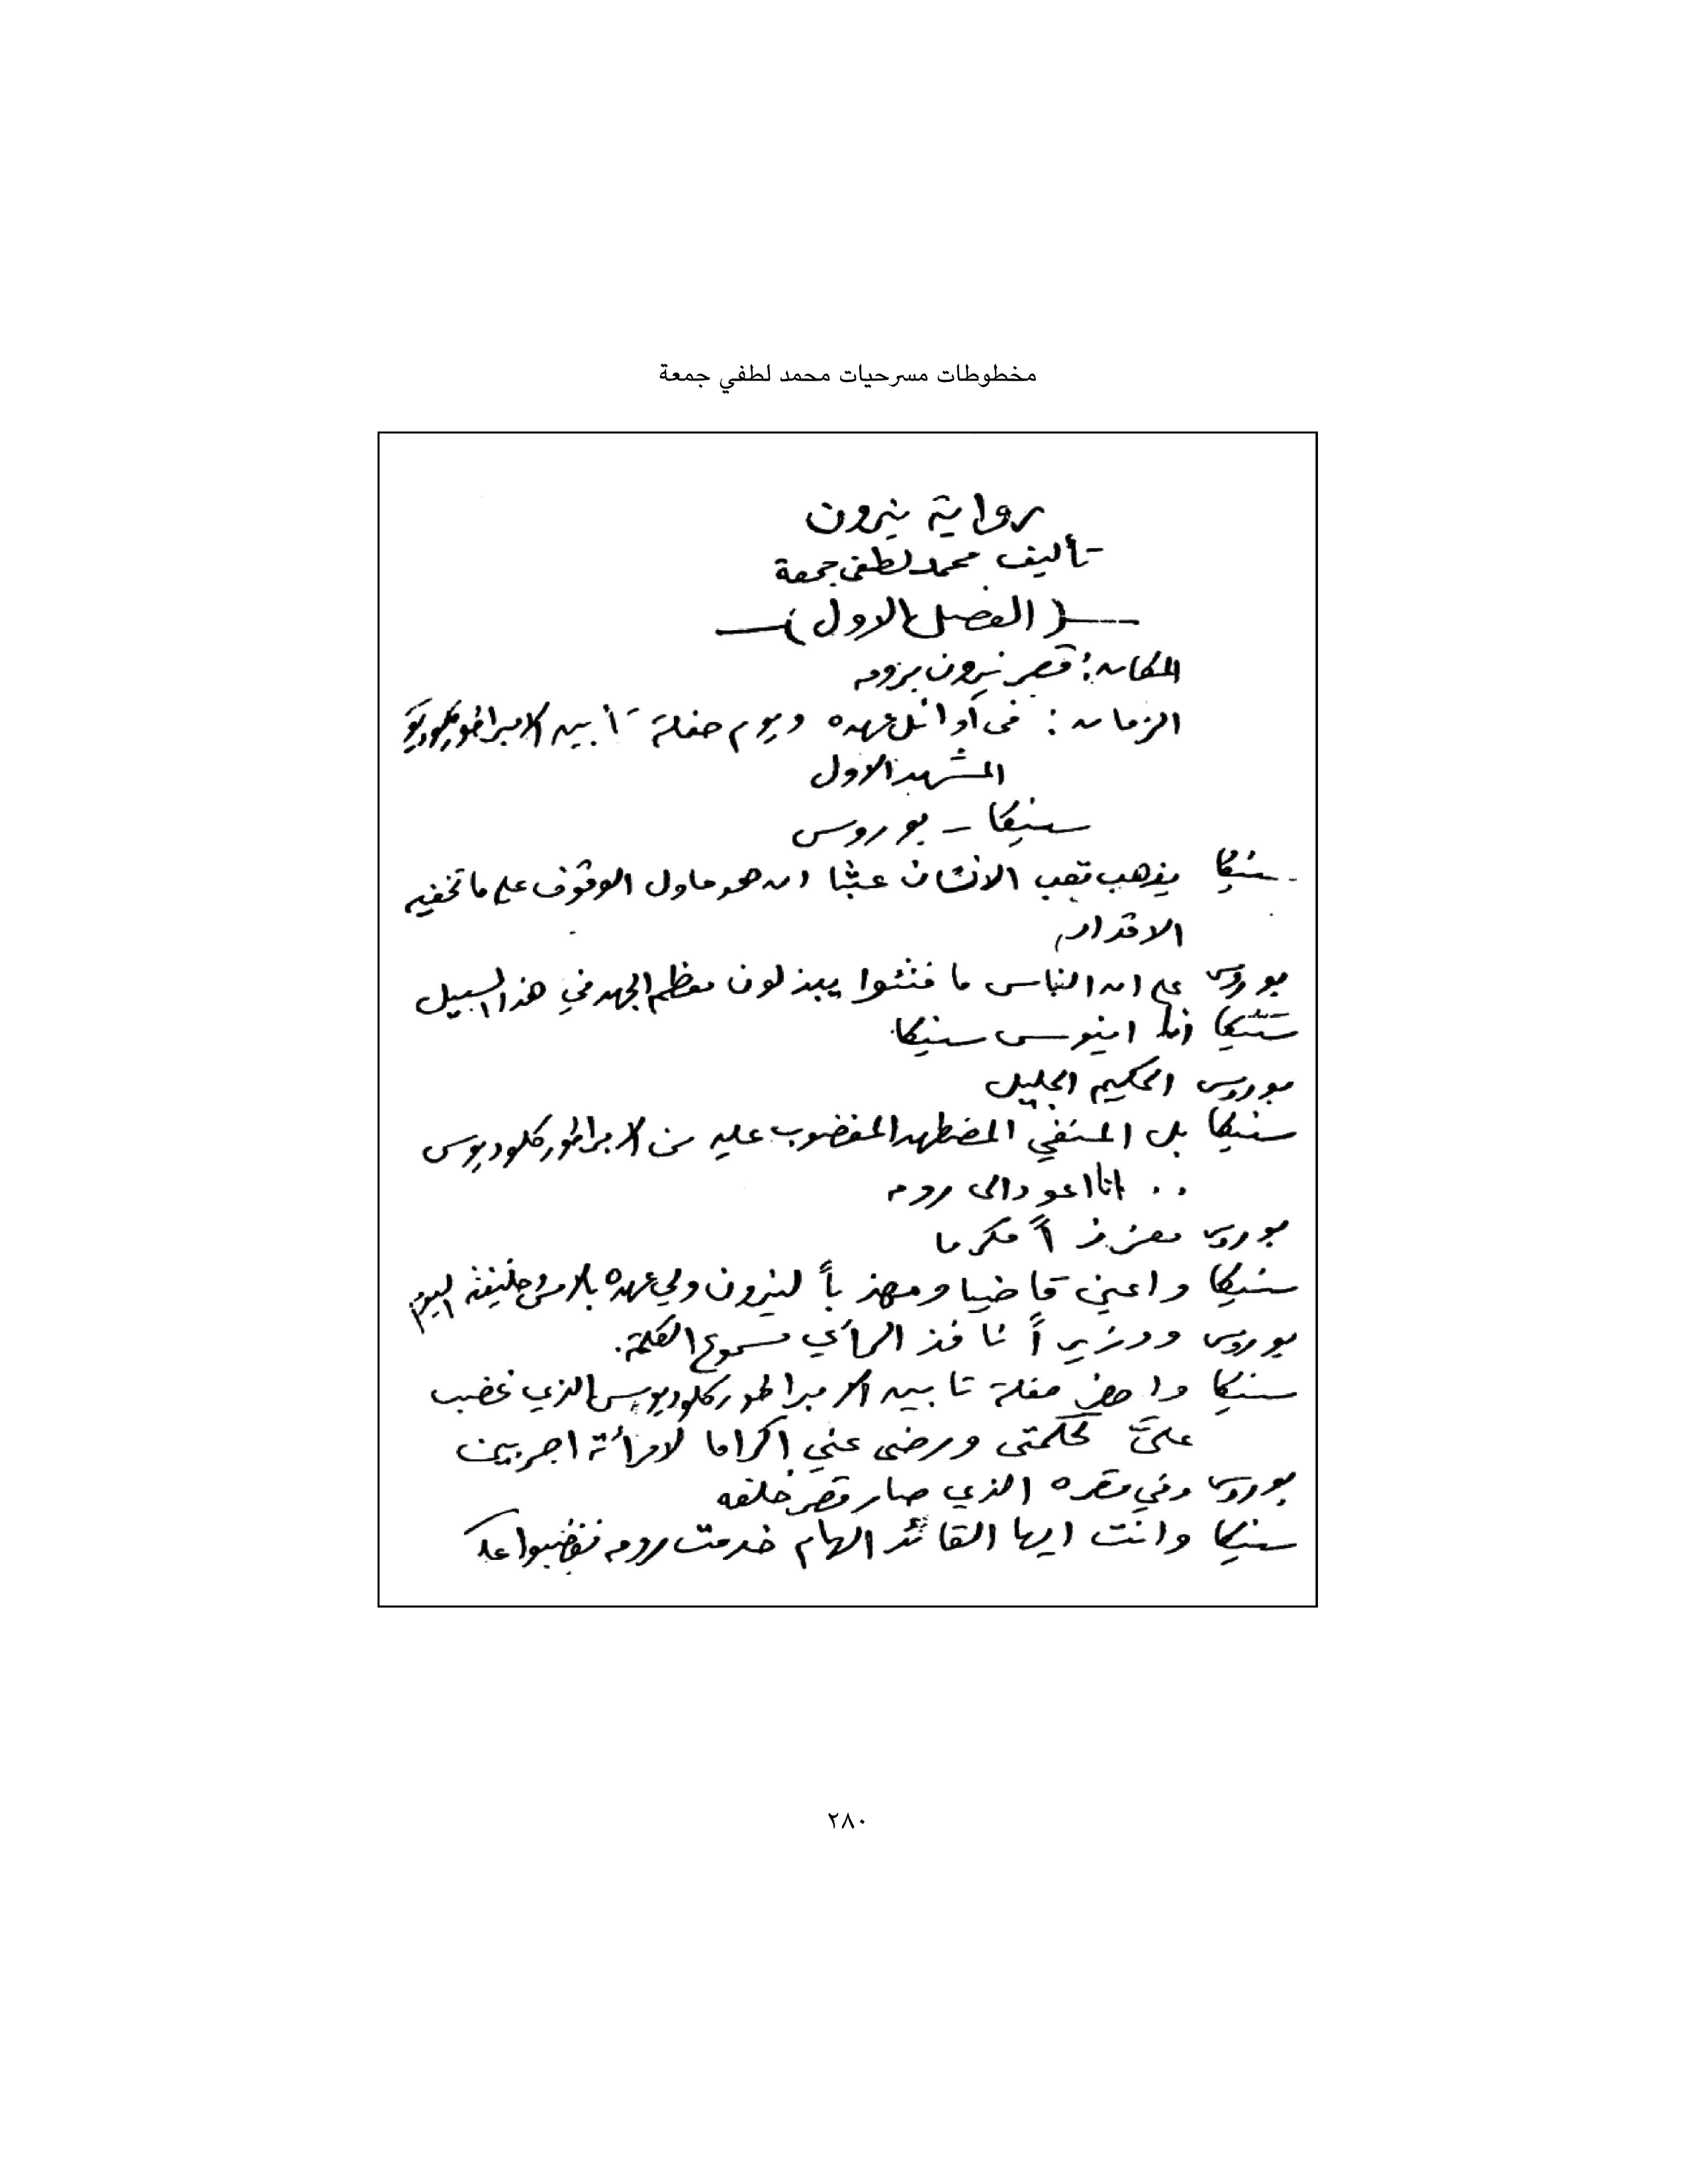 مخطوطات مسرحيات محمد لطفي جمعة
رواية نيرون
تأليف محمد لطفي جمعة
(الفصل الاول)
المكان: قصر نيرون برومه
الزمان: فى أوائل عهده ويوم حفلة تأبين الامبراطور كلوديوس
المشهد الاول
سنيكا – بوروس
سنيكا يذهب تعب الانسان عبثا ان هو حاول الوقوف على ما تخفيه
الاقدار
بوروس على ان الناس ما فتئوا يبذلون معظم الجهد في هذا السبيل
سنيكا انا اينوس سنيكا.
بوروس الحكيم الجليل
سنيكا بل المنفي المضطهد المغضوب عليه من الامبراطور كلوديوس
.. انا اعود الى رومه
بوروس معززاً مكرما
سنيكا واعين قاضيا ومهذباً لنيرون ولي عهده بالامس وخليفته اليوم
بوروس ووزيراً نافذ الرأي مسموع الكلمة.
سنيكا واحضر حفلة تابين الامبراطور كلوديوس الذي غضب
عليَّ لحكمتى ورضى عني اكراما لامرأته اجريبين
بوروس وفي قصره الذي صار قصر خلفه
سنيكا وانت ايها القائد الهام خدمت رومه فغضبوا عليك
٢٨٠